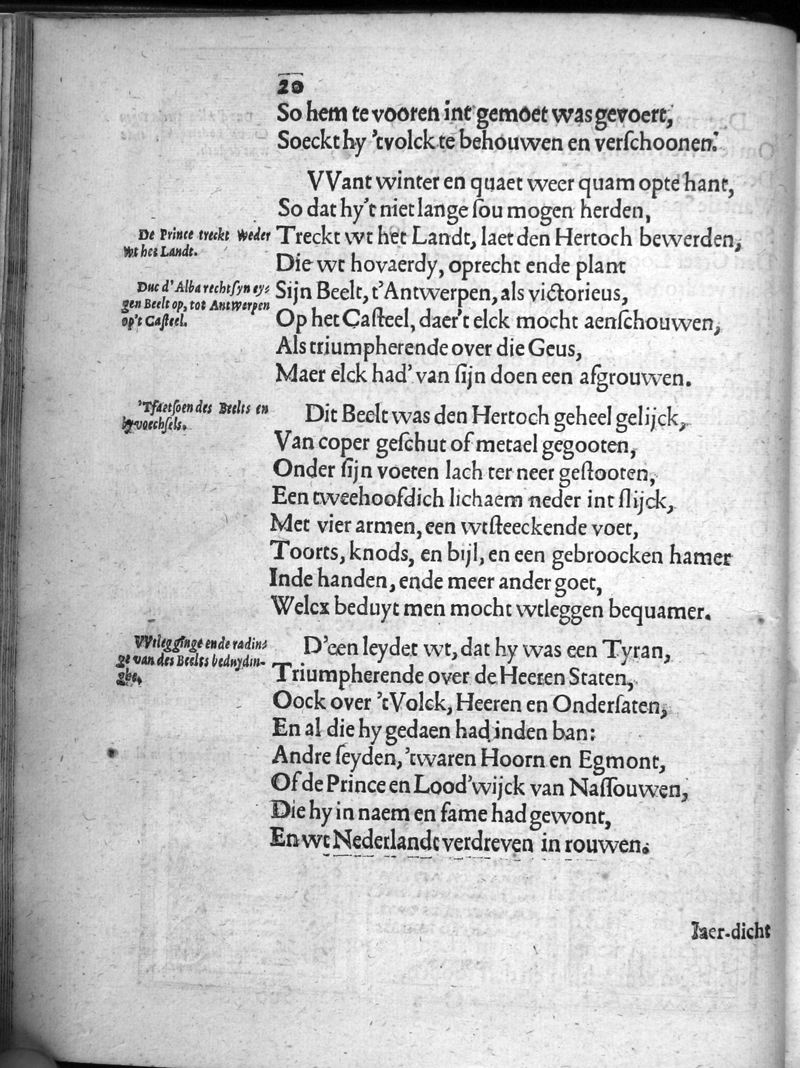 20
So hem te vooren int gemoet was gevoert,
Soeckt hy 'tvolck te behouwen en verſchoonen:
VVant winter en quaet weer quam opte hant,
So dat hy't niet lange ſou mogen herden,
De Prince treckt Weder
Wt het Landt.
Treckt wt het Landt, laet den Hertoch bewerden,
Die wt hovaerdy, oprecht ende plant
Duc d'Alba recht ſyn ey-
gen Beelt op, tot Antwerpen
op't Caſteel.
Sijn Beelt, t'Antwerpen, als victorieus,
Op het Caſteel, daer't elck mocht aenſchouwen,
Als triumpherende over die Geus,
Maer elck had' van ſijn doen een afgrouwen.
'Tfaetſoen des Beelts en
bijvoechſels.
Dit Beelt was den Hertoch geheel gelijck,
Van coper geſchut of metael gegooten,
Onder ſijn voeten lach ter neer geſtooten,
Een tweehoofdich lichaem neder int ſlijck,
Met vier armen, een wtſteeckende voet,
Toorts, knods, en bijl, en een gebroocken hamer
Inde handen, ende meer ander goet,
Welcx beduyt men mocht wtleggen bequamer.
VVtlegginge ende radin-
ge van des Beelts beduydin-
ghe.
D'een leydet wt, dat hy was een Tyran,
Triumpherende over de Heeren Staten,
Oock over 'tVolck, Heeren en Onderſaten,
En al die hy gedaen had inden ban:
Andre ſeyden, 'twaren Hoorn en Egmont,
Of de Prince en Lood'wijck van Naſſouwen,
Die hy in naem en fame had gewont,
En wt Nederlandt verdreven in rouwen.
Iaer-dicht